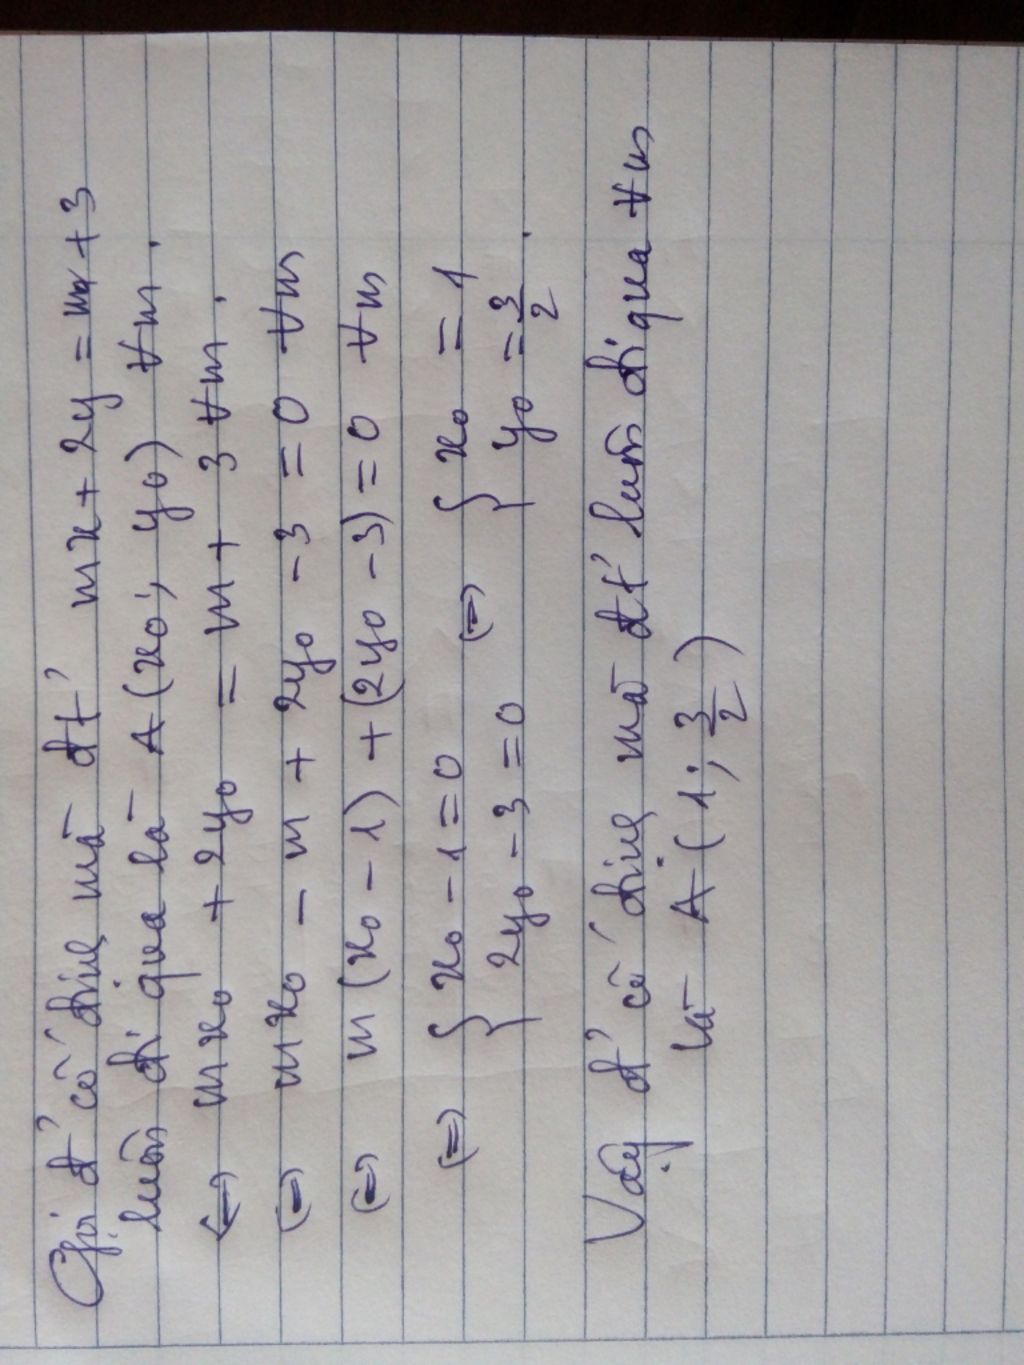 Gọi đ' cố định mà đt' mx + 2y = m + 3
luôn đi qua là A (x₀; y₀) ∀m.
⇔ mx₀ + 2y₀ = m + 3 ∀m.
⇔ mx₀ - m + 2y₀ - 3 = 0 ∀m
⇔ m (x₀ - 1) + (2y₀ - 3) = 0 ∀m
⇔ { x₀ - 1 = 0 ⇔ { x₀ = 1
2y₀ - 3 = 0 y₀ = 3/2 .
Vậy đ' cố định mà đt' luôn đi qua ∀m
là A (1; 3/2)